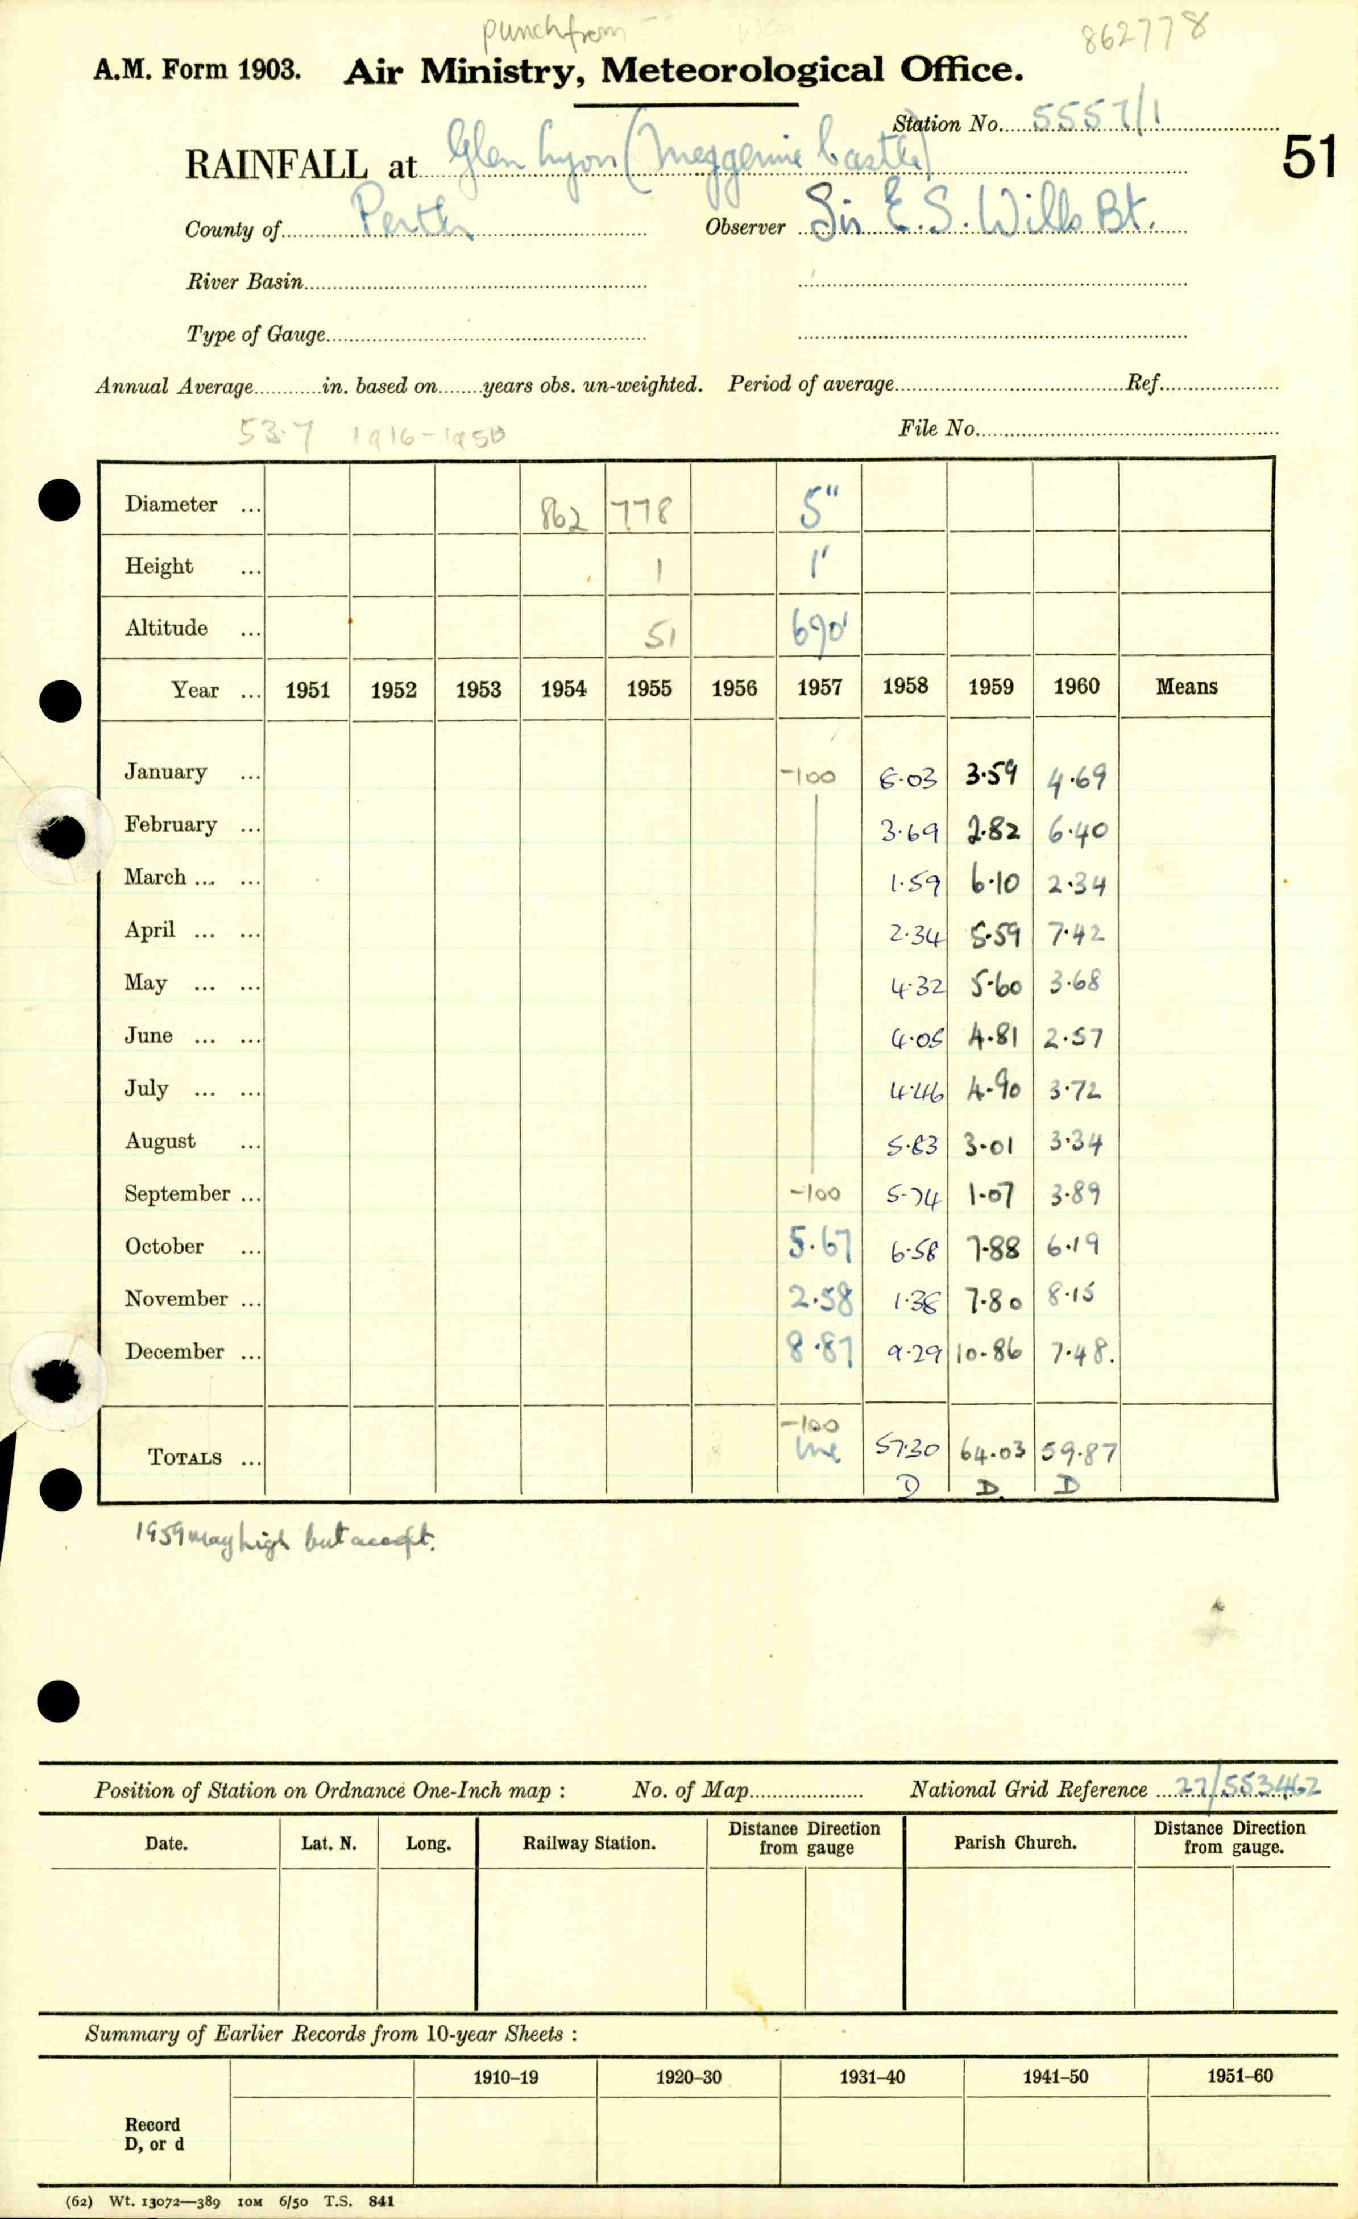 punch from
862778
A.M. Form 1903. Air Ministry, Meteorological Office.
Station No. 5557/1
RAINFALL at Glen Lyon (Meggernie Castle)
51
County of Perth Observer Sir E.S. Wills Bt.
River Basin
Type of Gauge
Annual Average in. based on years obs. un-weighted. Period of average Ref.
53.7 1916-1950 File No.
Diameter ... 862 778 5"
Height ... 1 1'
Altitude ... 51 690'
Year ... 1951 1952 1953 1954 1955 1956 1957 1958 1959 1960 Means
January ... -100 8.03 3.59 4.69
February ... 3.69 2.82 6.40
March ... ... 1.59 6.10 2.34
April ... ... 2.34 5.59 7.42
May ... ... 4.32 5.60 3.68
June ... ... 4.05 4.81 2.57
July ... ... 4.46 4.90 3.72
August ... 5.83 3.01 3.34
September ... -100 5.74 1.07 3.89
October ... 5.67 6.58 7.88 6.19
November ... 2.58 1.38 7.80 8.15
December ... 8.87 9.29 10.86 7.48.
-100
TOTALS ... Inc 57.30 64.03 59.87
D D D
1959 may high but accept.
Position of Station on Ordnance One-Inch map : No. of Map National Grid Reference 27/553462
Date. Lat. N. Long. Railway Station. Distance Direction from gauge Parish Church. Distance Direction from gauge.
Summary of Earlier Records from 10-year Sheets :
1910–19 1920–30 1931–40 1941–50 1951–60
Record
D, or d
(62) Wt. 13072—389 10M 6/50 T.S. 841